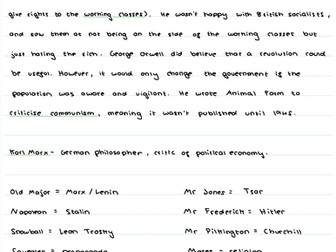 give rights to the working classes). He wasn't happy with British socialists,
and saw them at not being on the side of the working classes but
just hating the rich. George Orwell did believe that a revolution could
be useful. However, it would only change the government if the
population was aware and vigilant. He wrote Animal Farm to
criticise communism, meaning it wasn't published until later.
Karl Marx - German philosopher, critic of political economy.
Old Major = Marx / Lenin
Mr Jones = Tsar
Napoleon = Stalin
Mr Frederick = Hitler
Snowball = Leon Trotsky
Mr Pilkington = Churchill
Squealer = propaganda
Moses = religion